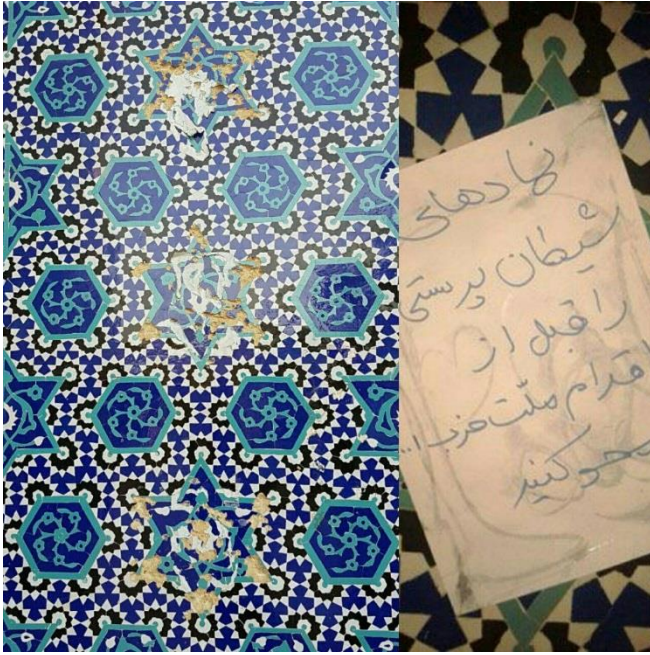 نمادهای
شیطان پرستی
را قبل از
اقدام ملّت حزب ا...
محو کنید